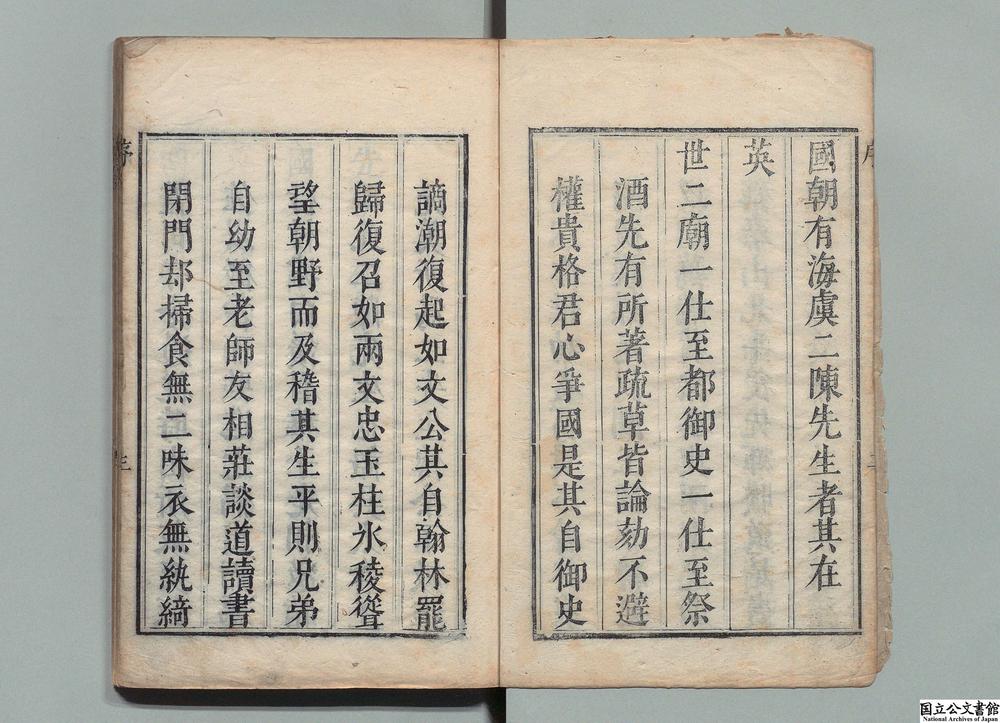 國朝有海虞二陳先生者其在
英
世二廟一仕至都御史一仕至祭
酒先有所著疏草皆論劾不避
權貴格君心爭國是其自御史
謫潮復起如文公其自翰林罷
歸復召如兩文忠玉柱氷稜聳
朢朝野而及稽其生平則兄弟
自幼至老師友相莊談道讀書
閉門却掃食無二味衣無紈綺
序
三
国立公文書館
National Archives of Japan